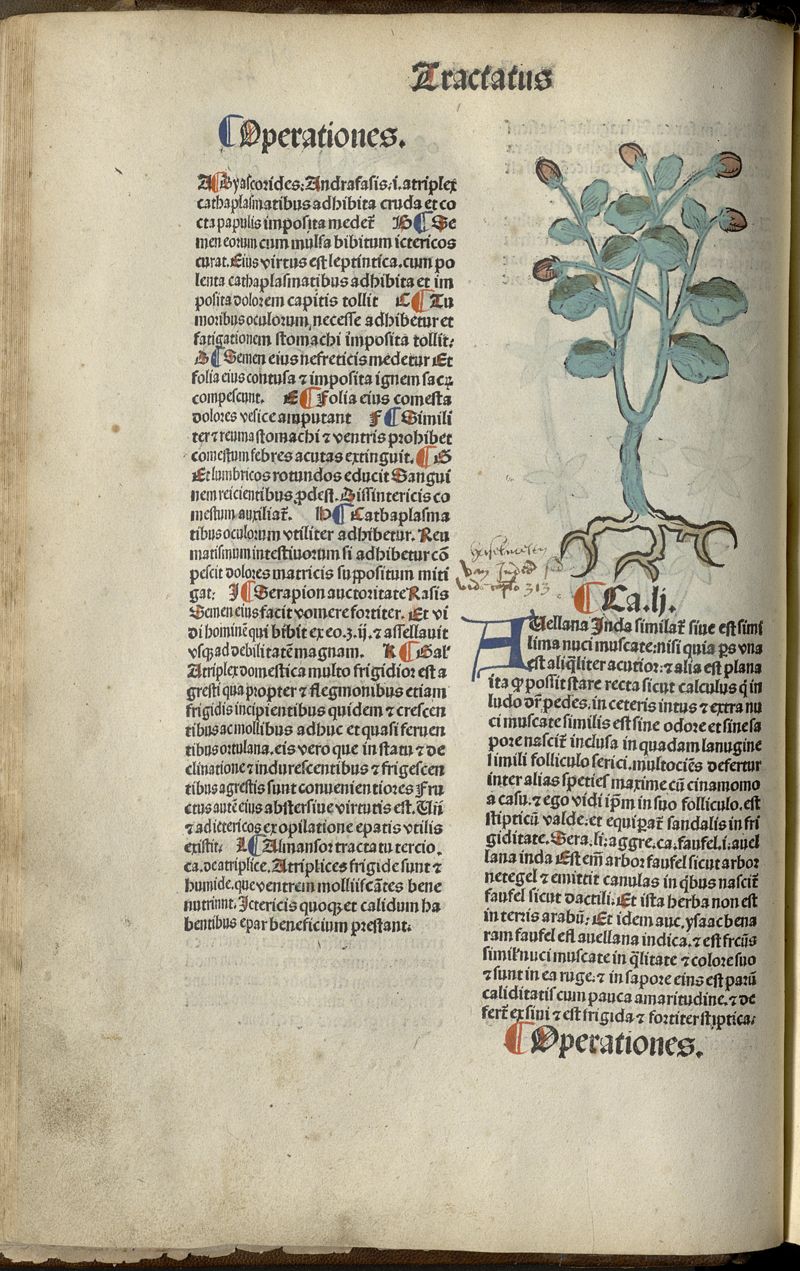 Tractatus
Operationes.
A Dyascorides: Andrafasis .i. atriplex
cathaplasmatibus adhibita cruda et co
cta papulis imposita medet̃ B Se
men eorum cum mulsa bibitum ictericos
curat. Eius virtus est leptintica. cum po
lenta cathaplasmatibus adhibita et im
posita dolorem capitis tollit C Tu
moribus oculorum, necesse adhibetur et
fatigationem stomachi imposita tollit:
D Semen eius nefreticis medetur Et
folia eius contusa ⁊ imposita ignem sacꝝ
compescunt. E Folia eius comesta
dolores vesice amputant F Simili
ter ⁊ reuma stomachi ⁊ ventris prohibet
comestum febres acutas extinguit. G
Et lumbricos rotundos educit Sangui
nem reicientibus ꝓdest. Dissintericis co
mestum auxiliat̃. H Cathaplasma
tibus oculorum vtiliter adhibetur. Reu
matismum intestiuorum si adhibetur cō
pescit dolores matricis suppositum miti
gat: I Serapion auctoritate Rasis
Semen eius facit vomere fortiter. Et vi
di hominē qui bibit ex eo .ʒ. ij. ⁊ assellauit
vsqꝫ ad debilitatē magnam. K Gal'
Atriplex domestica multo frigidior est a
gresti qua propter ⁊ flegmonibus etiam
frigidis incipientibus quidem ⁊ crescen
tibus ac mollibus adhuc et quasi feruen
tibus ortulana. eis vero que in statu ⁊ de
clinatione ⁊ indurescentibus ⁊ frigescen
tibus agrestis sunt conuenientiores Fru
ctus autē eius abstersiue virtutis est. Uñ
⁊ ad ictericos ex opilatione epatis vtilis
existit. L Almansor tractatu tercio.
ca. de atriplice. Atriplices frigide sunt ⁊
humide. que ventrem molliſicātes bene
nutriunt. Ictericis quoqꝫ et calidum ha
bentibus epar beneficium prestant.
313
Ca. lj.
AUellana Inda similat̃ siue est simi
lima nuci muscate: nisi quia ꝑs vna
est aliq̃liter acutior: ⁊ alia est plana
ita ꝙ possit stare recta sicut calculus q̇ in
ludo dr̃ pedes. in ceteris intus ⁊ extra nu
ci muscate similis est sine odore et sine sa
pore nascit̃ inclusa in quadam lanugine
simili folliculo serici. multociēs defertur
inter alias species maxime cū cinamomo
a casu. ⁊ ego vidi ip̄m in suo folliculo. est
stipticū valde. et equipat̃ sandalis in fri
giditate. Sera. li. aggre. ca. faufel. i. auel
lana inda Est em̄ arbor faufel sicut arbor
netegel ⁊ emittit canulas in q̇bus nascit̃
faufel sicut dactili. Et ista herba non est
in terris arabū: Et idem auc. ysaac bena
ram faufel est auellana indica. ⁊ est frcūs
simil' nuci muscate in q̃litate ⁊ colore suo
⁊ sunt in ea ruge. ⁊ in sapore eius est parū
caliditatis cum pauca amaritudine. ⁊ de
fert̃ ex sini ⁊ est frigida ⁊ fortiter stiptica:
Operationes.